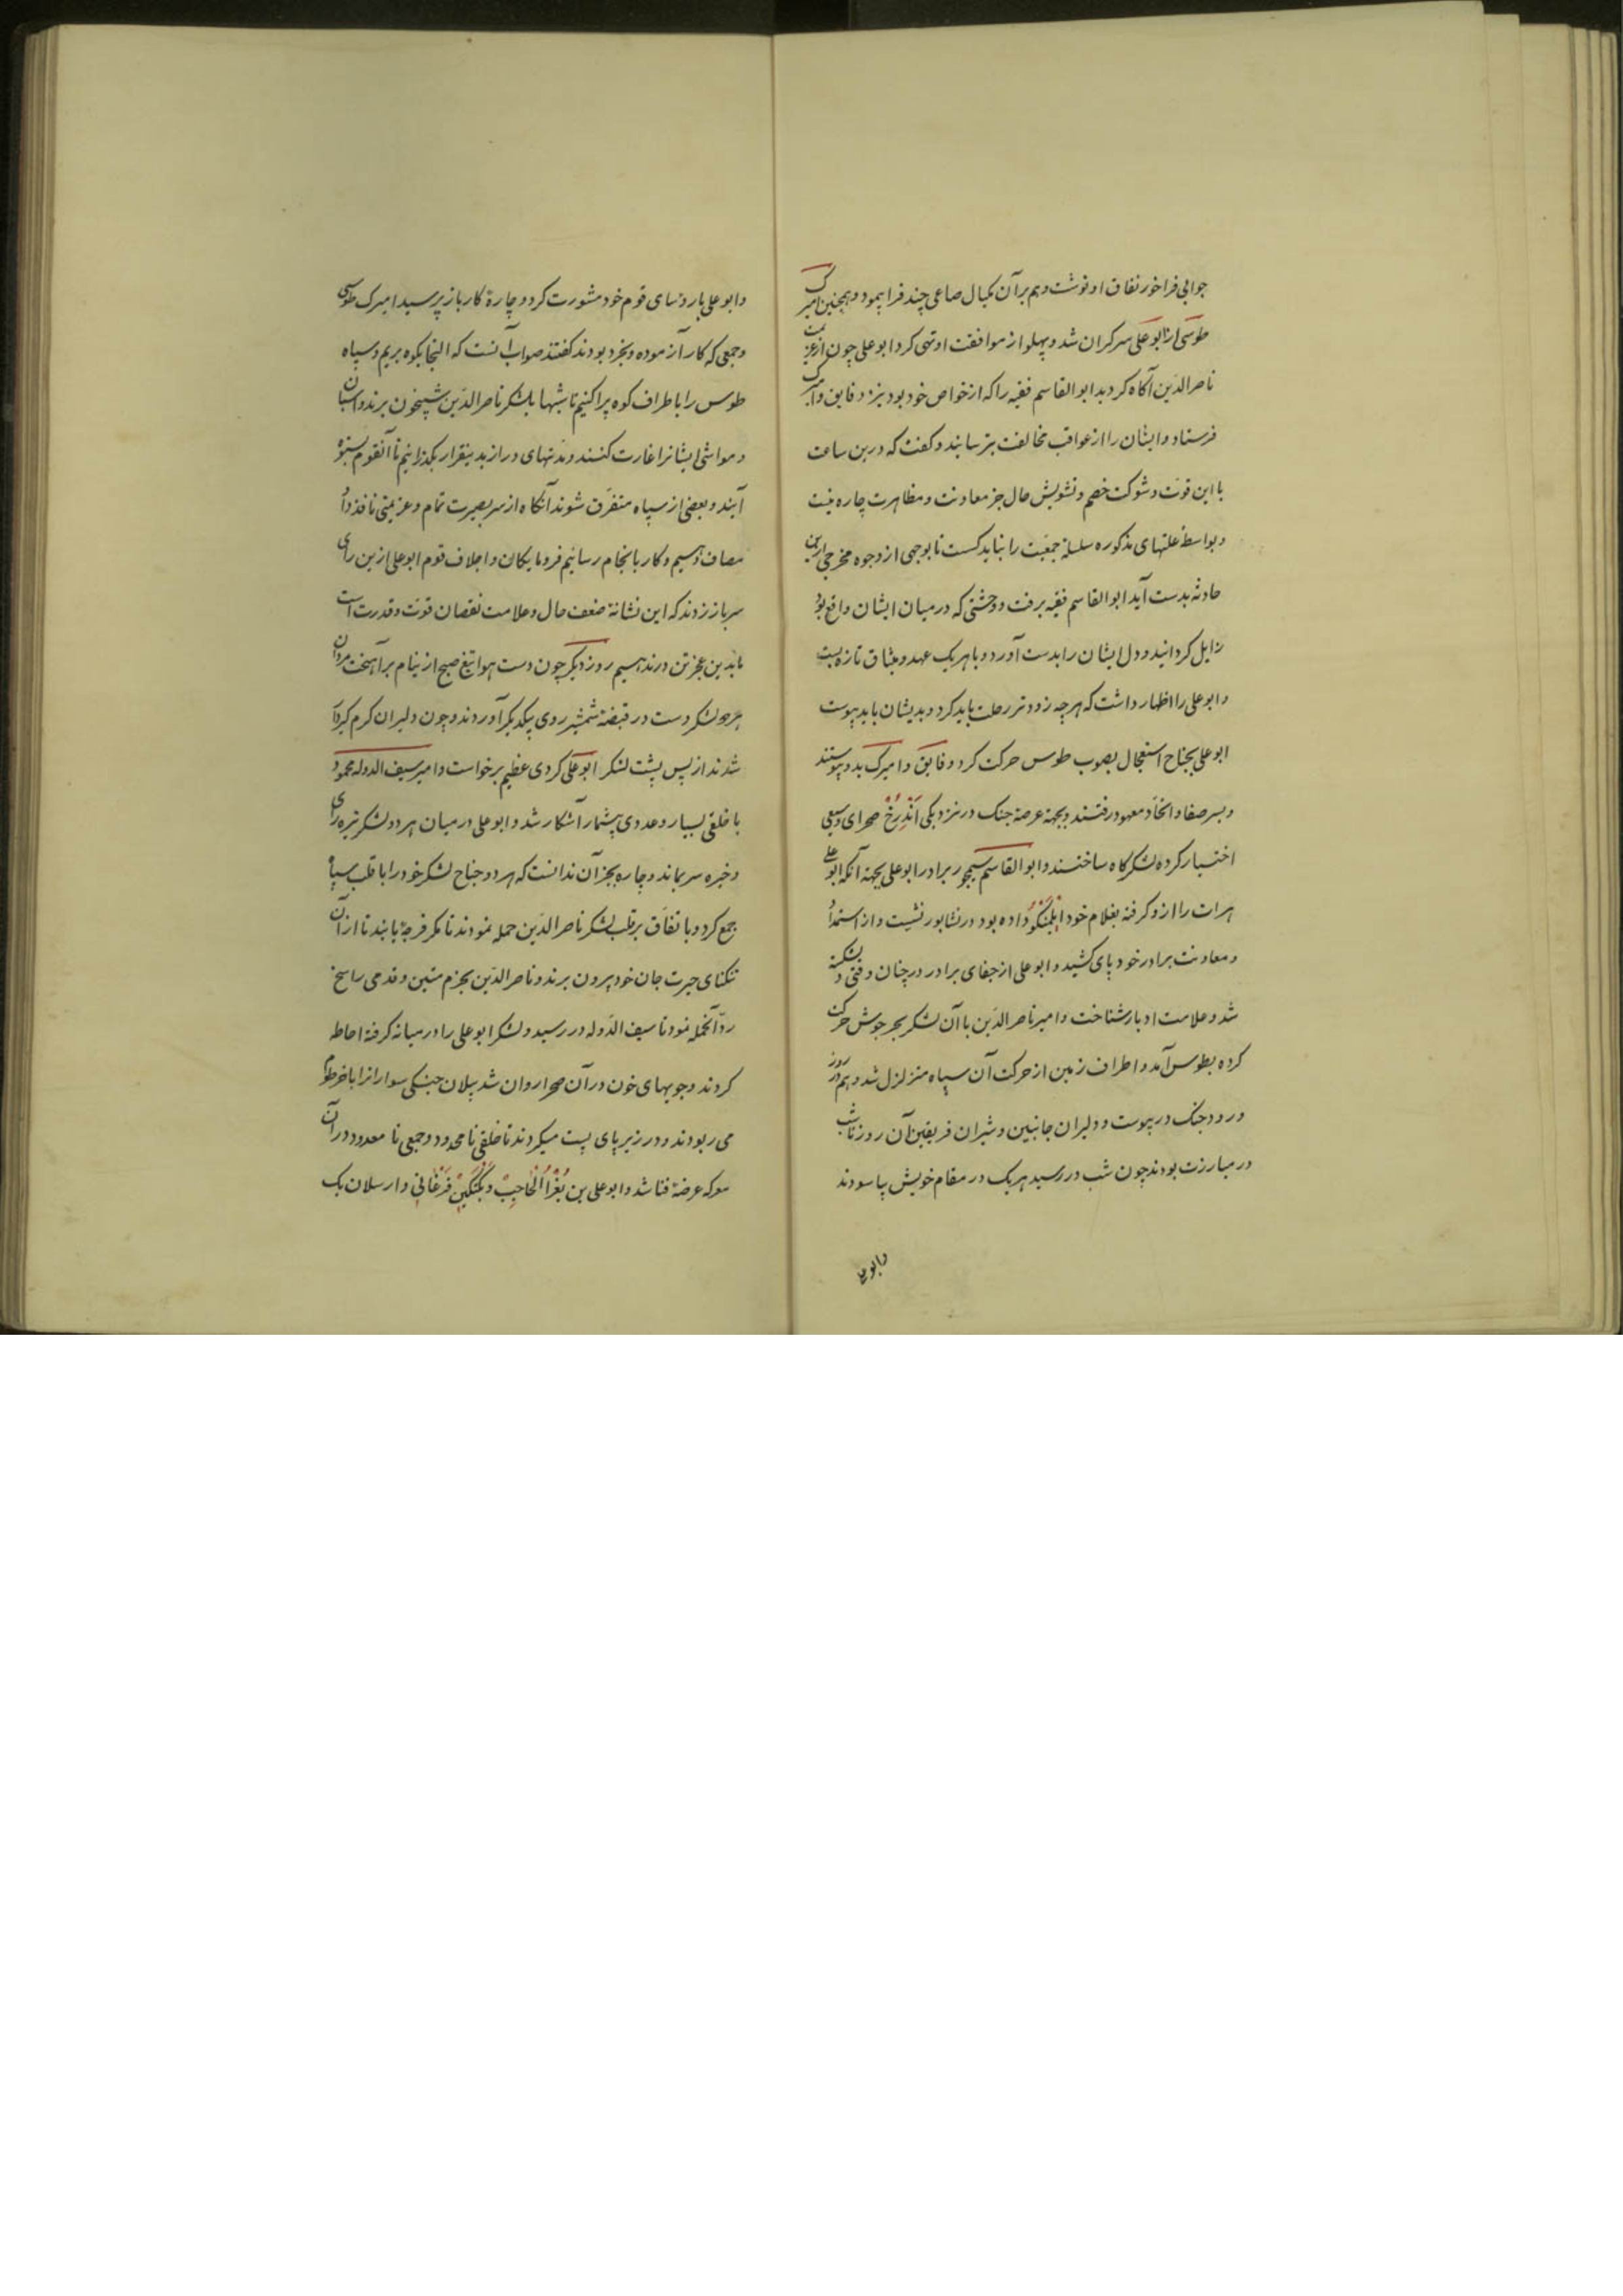 جوابی فراخور نفاق او نوشت و هم بر آن مکیال صاعی چند فرا پیمود و همچنین امیرک
طوسی از ابو علی سرگران شد و پهلو از موافقت او تهی کرد ابو علی چون از عزیمت
ناصر الدین آگاه گردید ابو القاسم فقیه را که از خواص خود بود بنزد فایق و امیرک
فرستاد و ایشان را از عواقب مخالفت بترسانید و گفت که درین ساعت
با این قوت و شوکت خصم و تشویش حال جز معاونت و مظاهرت چاره نیست
و بواسطهٔ علتهای مذکوره سلسلهٔ جمعیت را نباید کسست تا بوجهی از وجوه مخرجی ازین
حادثه بدست آید ابو القاسم فقیه برفت و وحشتی که در میان ایشان واقع بود
زایل گردانید و دل ایشان را بدست آورد و با هر یک عهد و میثاق تازه ببست
و ابو علی را اظهار داشت که هر چه زودتر رحلت باید کرد و بدیشان باید پیوست
ابو علی بجناح استعجال بصوب طوس حرکت کرد و فایق و امیرک بدو پیوستند
و بسر صفا و اتحاد معهود رفتند و بجهة عرصهٔ جنک در نزدیکی اَندِرُخ صحرای وسیعی
اختیار کرده لشکرکاه ساختند و ابو القاسم سیمجور برادر ابو علی بجهة آنکه ابو علی
هرات را ازو گرفته بغلام خود ایلمنکو داده بود در نشابور نشست و از استمداد
و معاونت برادر خود پای کشید و ابو علی از جفای برادر در چنان وقتی دلشکسته
شد و علامت ادبار شناخت و امیر ناصر الدین با آن لشکر بحر جوش حرکت
کرده بطوس آمد و اطراف زمین از حرکت آن سپاه متزلزل شد و هم در روز
ورود جنک در پیوست و دلیران جانبین و شیران فریقین آن روز تا شب
در مبارزت بودند چون شب در رسید هر یک در مقام خویش بیاسودند
و ابو علی
و ابو علی با رؤسای قوم خود مشورت کرد و چارهٔ کار باز پرسید امیرک طوسی
و جمعی که کار آزموده و بخرد بودند گفتند صواب آنست که التجا بکوه بریم و سپاه
طوس را باطراف کوه پراکنیم تا شبها بلشکر ناصر الدین شبیخون برند و اسبان
و مواشی ایشانرا غارت کنند و مدتهای دراز بدینقرار بکذرانیم تا آنقوم بستوه
آیند و بعضی از سپاه متفرق شوند آنگاه از سر بصیرت تمام و عزیمتی نافذ داد
مصاف دهیم و کار بانجام رسانیم فرومایکان و اجلاف قوم ابو علی ازین رای
سر باز زدند که این نشانهٔ ضعف حال و علامت نقصان قوت و قدرت است
ما بدین عجز تن در ندهیم روز دیگر چون دست هوا تیغ صبح از نیام بر آهیخت مردان
هر دو لشکر دست در قبضهٔ شمشیر روی بیکدیگر آوردند و چون دلیران گرم گیرودار
شدند از پس پشت لشکر ابو علی گردی عظیم برخواست و امیر سیف الدوله محمود
با خلقی بسیار و عددی بیشمار آشکار شد و ابو علی در میان هر دو لشکر تیره رای
و خیره سر بماند و چاره بجز آن ندانست که هر دو جناح لشکر خود را با قلب سپاه
جمع کرد و باتفاق بر قلب لشکر ناصر الدین حمله نمودند تا مکر فرجهٔ یابند تا از آن
تنکنای حیرت جان خود بیرون برند و ناصر الدین بحزم متین و قدمی راسخ
ردّ آنحمله نمود تا سیف الدوله در رسید و لشکر ابو علی را در میانه گرفته احاطه
کردند و جویهای خون در آن صحرا روان شد پیلان جنگی سوارانرا با خرطوم
می ربودند و در زیر پای پست میکردند تا خلقی نا محدود و جمعی نا معدود در آن
معرکه عرضهٔ فنا شد و ابو علی بن بُغرا الحاجب و بکتکین فرغانی و ارسلان بک